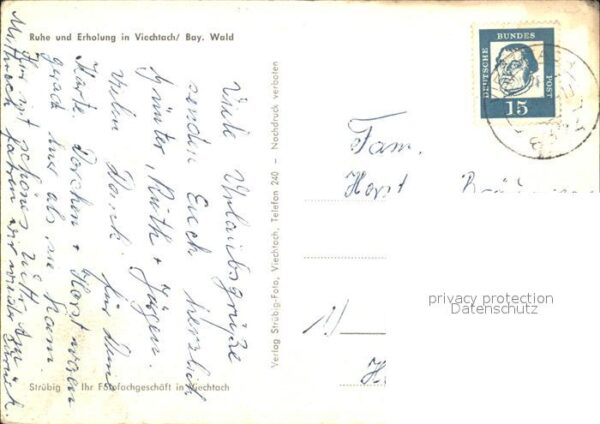 Ruhe und Erholung in Viechtach/ Bay. Wald
Viele Urlaubsgrüße
senden Euch herzlich
Günter, Ruth + Jürgen.
Vielen Dank für
Karte. Dorchen + Horst waren
gerad hier als sie kam.
Hier ist schönes
Mittwoch fahren wir wieder zurück
Strübig Ihr Fotofachgeschäft in Viechtach
Verlag Strübig-Foto, Viechtach, Telefon 240 — Nachdruck verboten
DEUTSCHE
BUNDES
POST
15
Fam.
Horst
privacy protection
Datenschutz